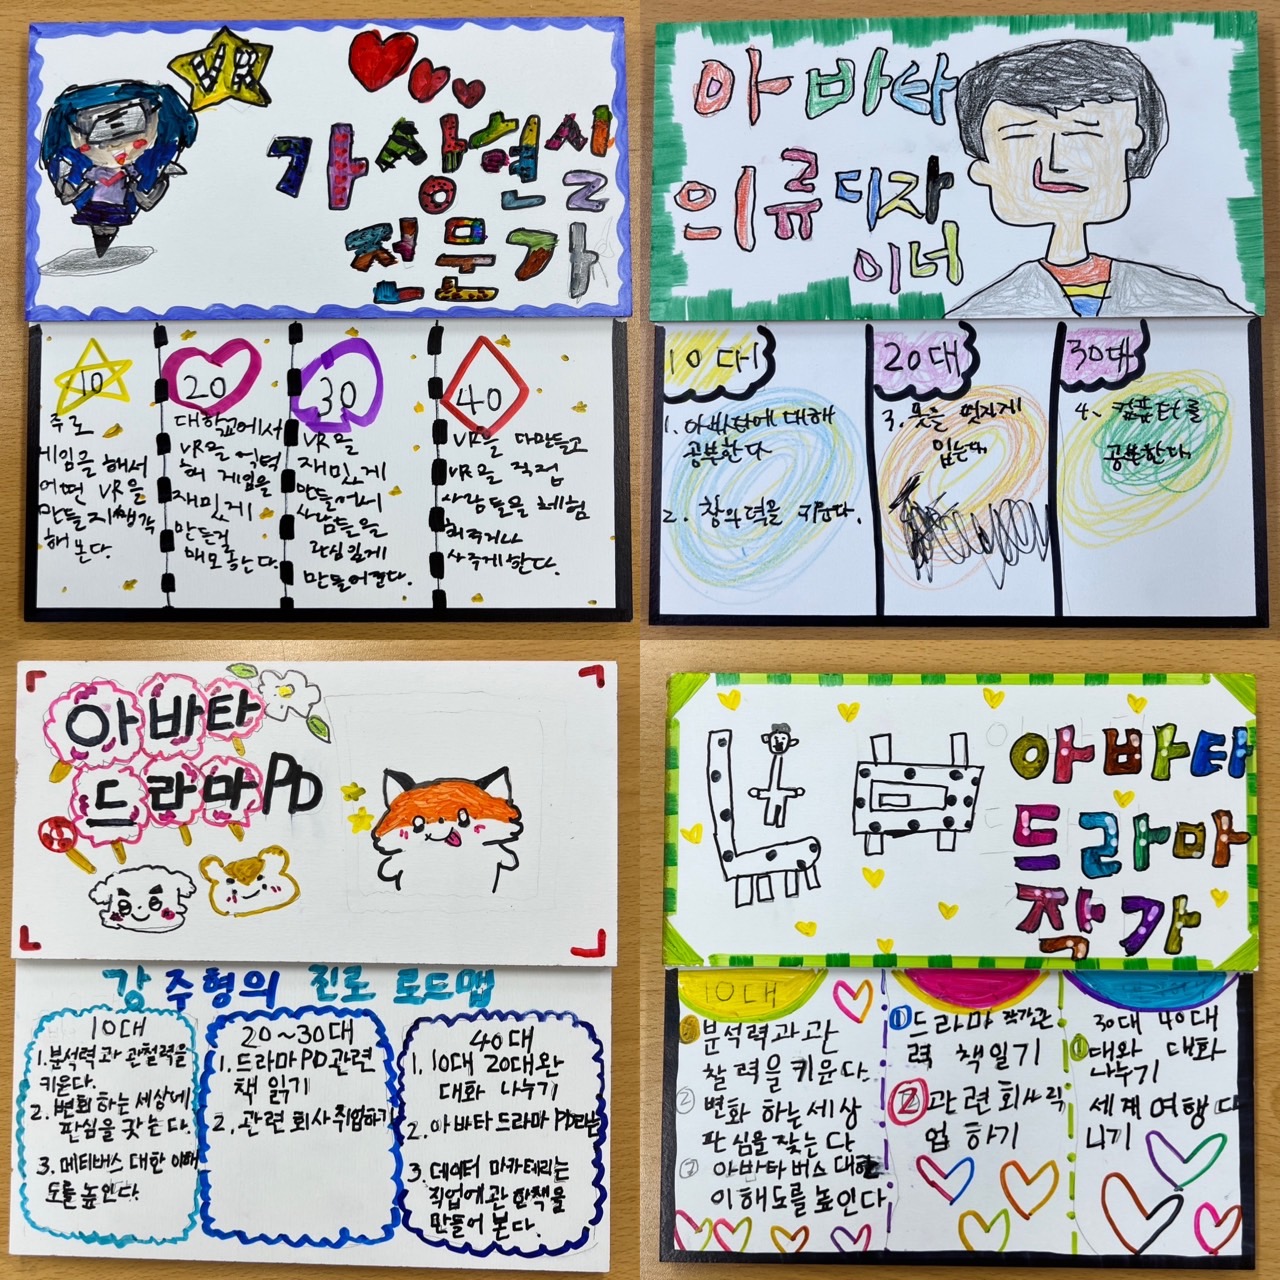 VR
가상현실
전문가
10
주로
게임을 해서
어떤 VR을
만들지 생각
해 본다.
20
대학교에서
VR을 억력
해 게임을
재미있게
만든걸
메모 하는다.
30
VR을
재미있게
만들어서
사람들을
관심있게
만들어간다.
40
VR을 다만들고
VR을 직접
사람들을 체험
해주거나
사주게한다.
아바타
의류 디자
이너
10대
1. 아바타에 대해
공부한다
2. 창의력을 키운다.
20대
3. 옷을 멋지게
입는다
30대
4. 컴퓨터를
공부한다
아바타
드라마PD
강주형의 진로 로드맵
10대
1. 분석력과 관철력을
키운다.
2. 변화 하는 세상에
관심을 갖는다.
3. 메티버스 대한 이해
도를 높인다.
20~30대
1. 드라마 PD 관련
책 읽기
2. 관련 회사 취업하기
40대
1. 10대 20대와
대화 나누기
2. 아바타 드라마 PD라는
3. 데이터 마카테리는
직업에 관한책을
만들어 본다.
아바타
드라마
작가
10대
분석력과 관
찰력을 키운다.
② 변화 하는 세상
관심을 갖는다
아바타버스 대한
이해도를 높인다
① 드라마 작가관
력 책 읽기
② 관련 회사 직
업 하기
30대 40대
① 대와 대화
나누기
세계 여행 다
니기